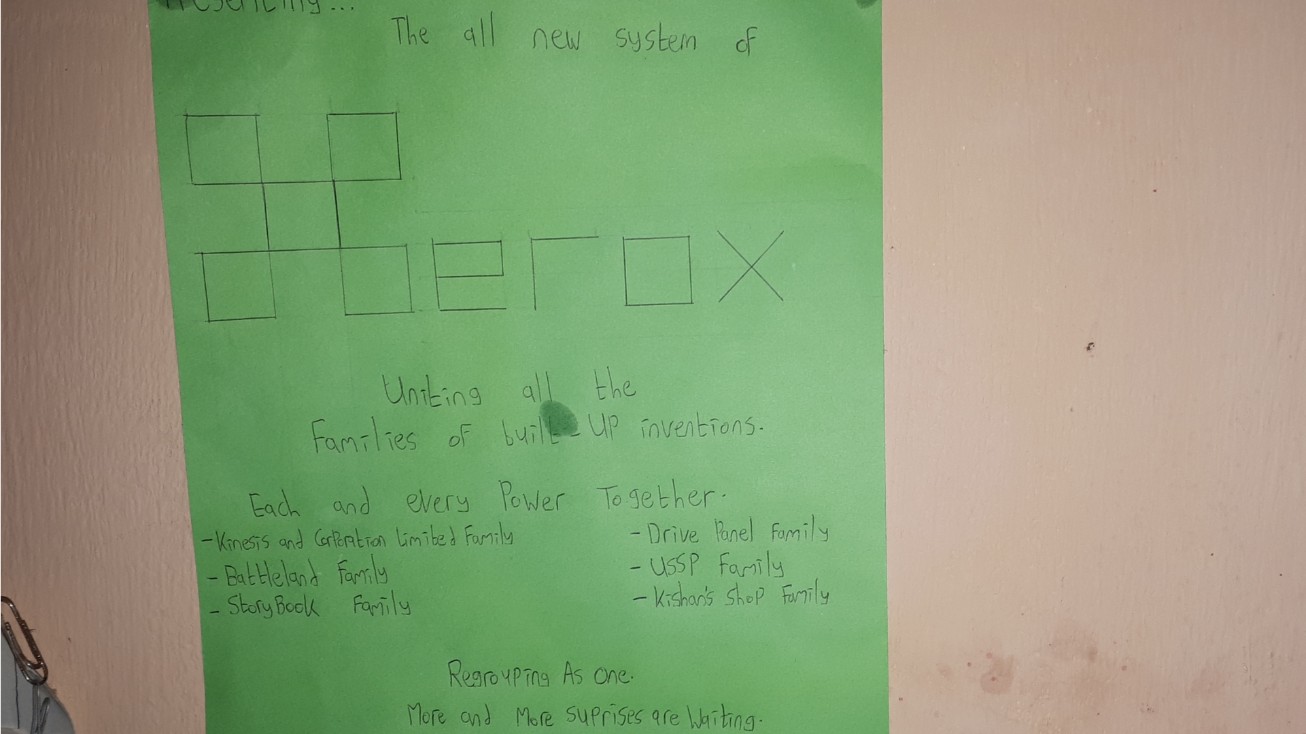 Presenting...
The all new system of
Xerox
Uniting all the
Families of built-UP inventions.
Each and every Power Together.
-Kinesis and Corporation Limited Family
- Drive Panel Family
- Battleland Family
- USSP Family
- StoryBook Family
- Kishan's Shop Family
Regrouping As one.
More and More suprises are Waiting.